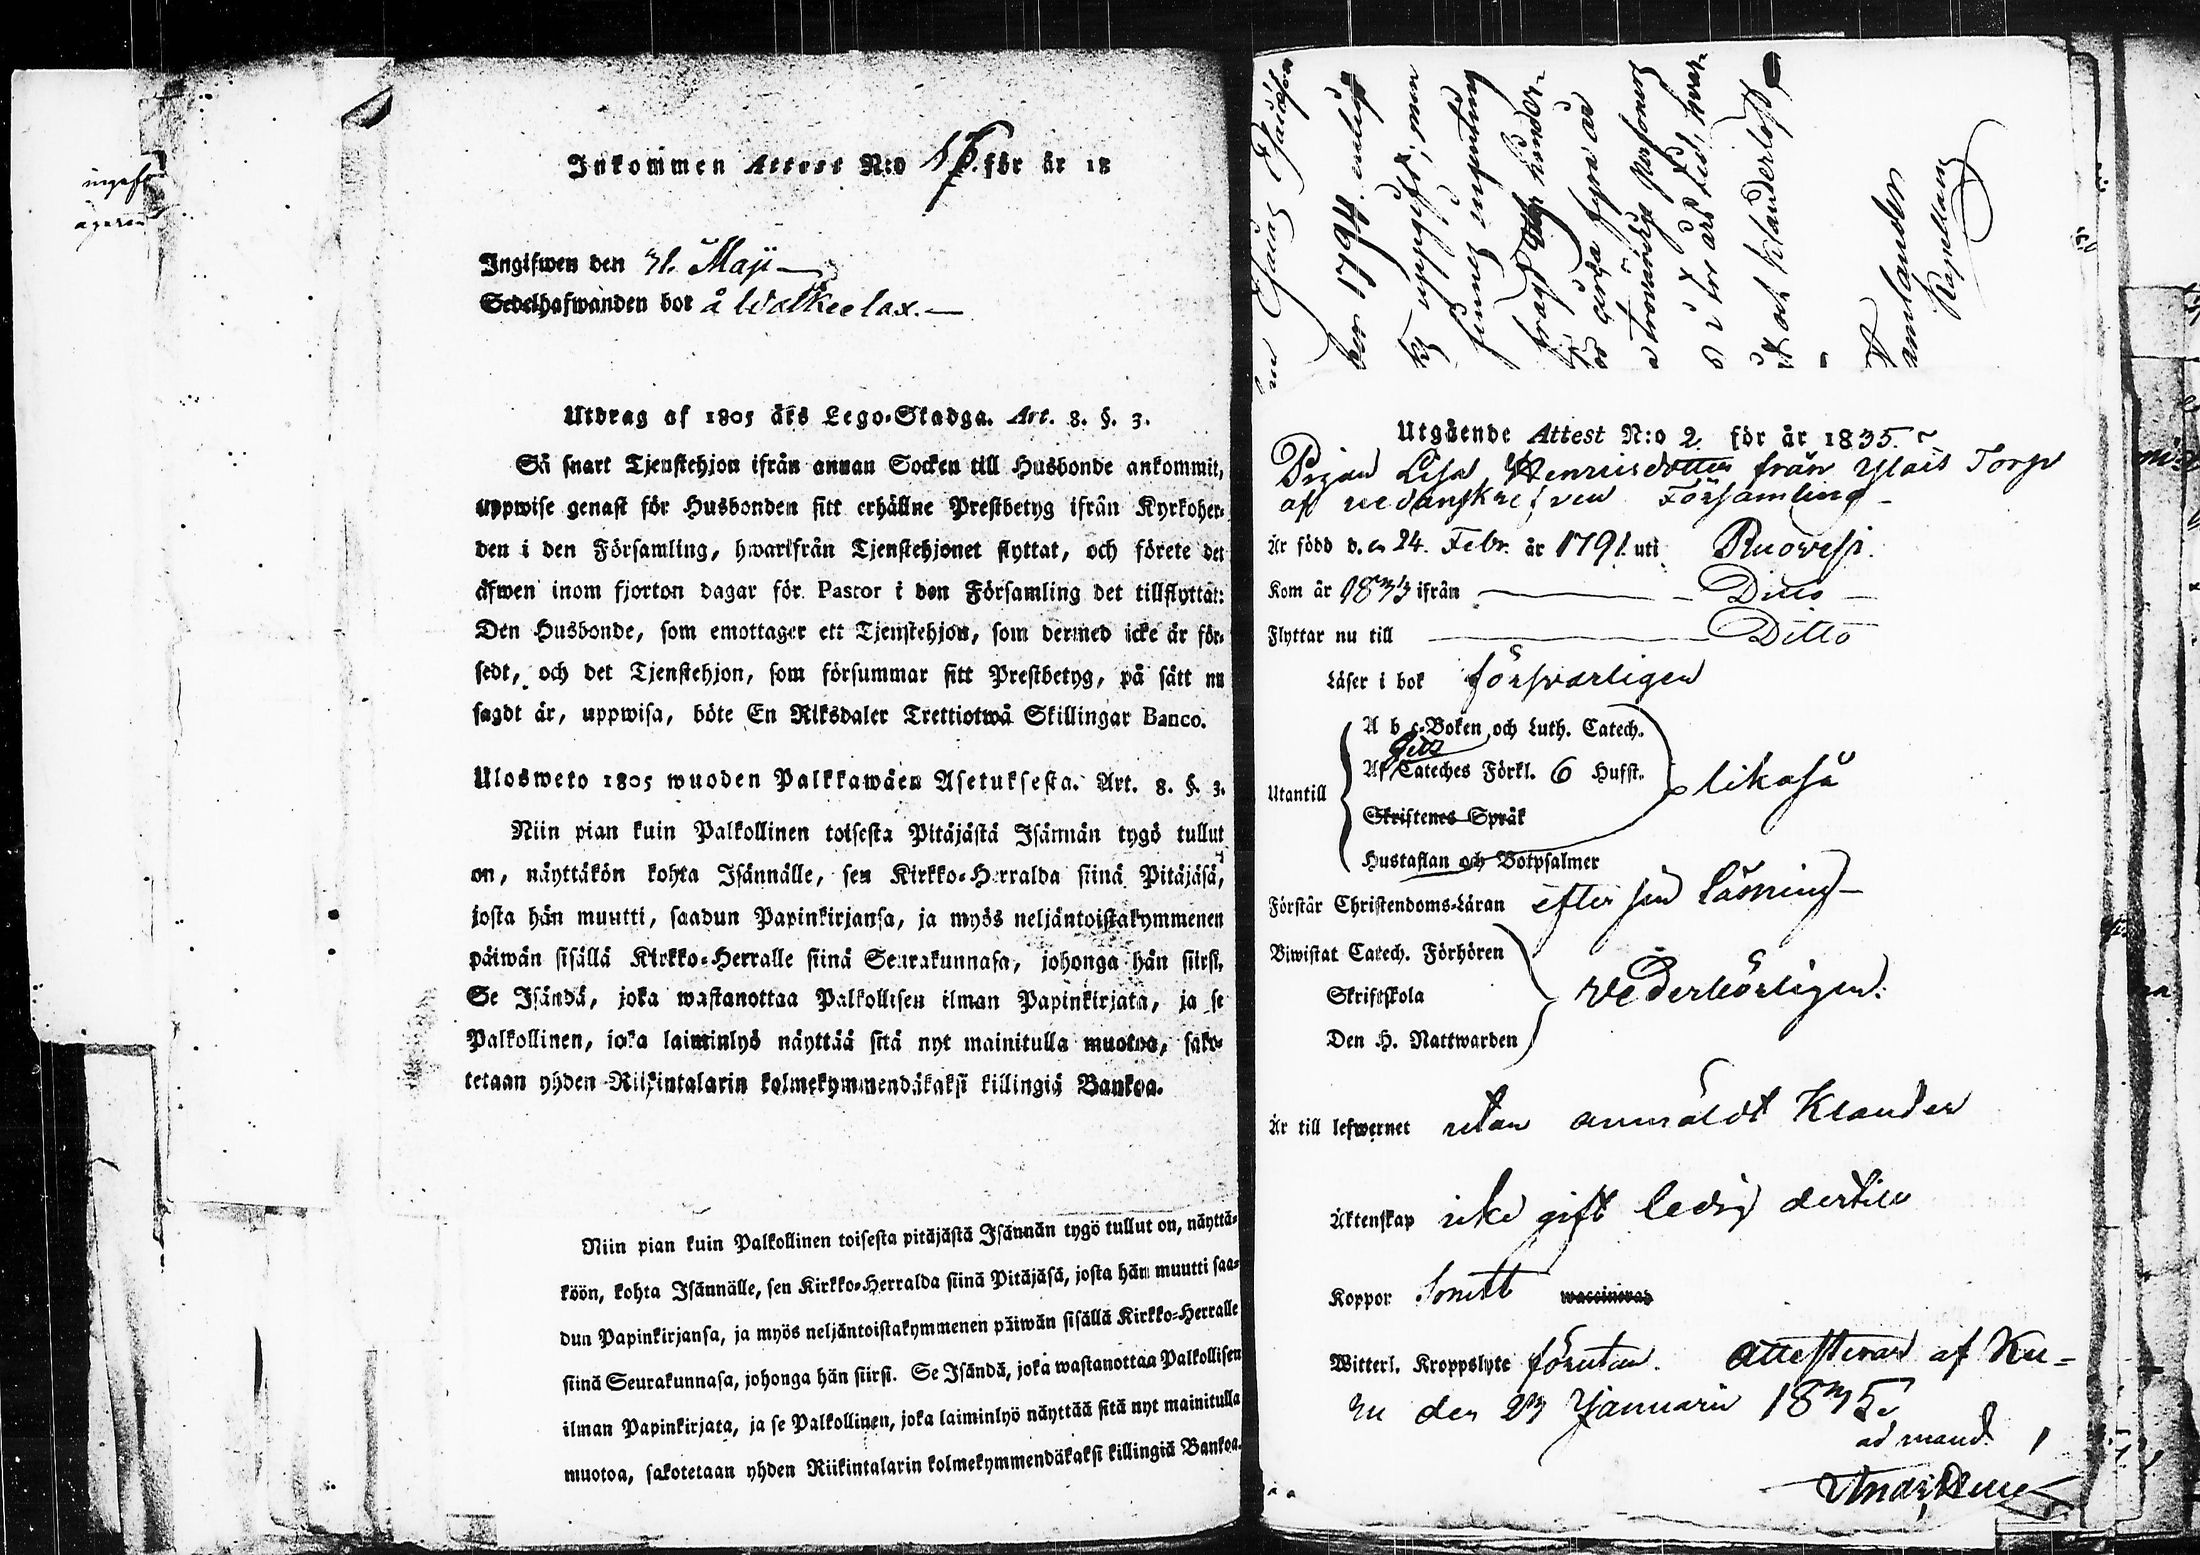 Inkommen Attest N:o 16. för år 18
Ingifwen den 31. Maji
Sedelhafwanden bor å Walkeelax.
Utdrag af 1805 års Lego-Stadga. Art. 8. §. 3.
Så snart Tjenstehjon ifrån annan Socken till Husbonde ankommit,
uppwise genast för Husbonden sitt erhållne Prestbetyg ifrån Kyrkoher-
den i den Församling, hwarifrån Tjenstehjonet flyttat, och förete det
äfwen inom fjorton dagar för Pastor i den Församling det tillflyttat:
Den Husbonde, som emottager ett Tjenstehjon, som dermed icke är för-
sedt, och det Tjenstehjon, som försummar sitt Prestbetyg, på sätt nu
sagdt är, uppwisa, böte En Riksdaler Trettiotwå Skillingar Banco.
Ulosweto 1805 wuoden Palkkawäen Asetuksesta. Art. 8. §. 3.
Niin pian kuin Palkollinen toisesta Pitäjästä Isännän tygö tullut
on, näyttäkön kohta Isännälle, sen Kirkko-Herralda siinä Pitäjäsä,
josta hän muutti, saadun Papinkirjansa, ja myös neljäntoistakymmenen
päiwän sisällä Kirkko-Herralle siinä Seurakunnasa, johonga hän siirsi.
Se Isändä, joka wastanottaa Palkollisen ilman Papinkirjata, ja se
Palkollinen, joka laiminlyö näyttää sitä nyt mainitulla muotoa, sako-
tetaan yhden Riikintalarin kolmekymmendäkaksi killingiä Bankoa.
Niin pian kuin Palkollinen toisesta pitäjästä Isännän tygö tullut on, näyttä-
köön, kohta Isännälle, sen Kirkko-Herralda siinä Pitäjäsä, josta hän muutti saa-
dun Papinkirjansa, ja myös neljäntoistakymmenen päiwän sisällä Kirkko-Herralle
siinä Seurakunnasa, johonga hän siirsi. Se Isändä, joka wastanottaa Palkollisen
ilman Papinkirjata, ja se Palkollinen, joka laiminlyö näyttää sitä nyt mainitulla
muotoa, sakotetaan yhden Riikintalarin kolmekymmendäkaksi killingiä Bankoa.
1794 enligt
uppgift; men
finnes
fyra år
personer
i tre års tid
och klanderlöst
Utgående Attest N:o 2 för år 1835.
Pigan Lisa Henricsdotter från Torp
af nedanskrefven Församling
Är född d.en 24. Febr. år 1791. uti Ruowesi.
Kom år 1833 ifrån Ditto
Flyttar nu till Ditto
Läser i bok försvarligen
Utantill
A b c-Boken och Luth. Catech.
Af Cateches Förkl. 6 Hufst.
Skriftenes Språk
Hustaflan och Botpsalmer
likaså
Förstår Christendoms-Läran efter sin läsning
Biwistat Catech. Förhören
Skriftskola
Den H. Nattwarden
vederbörligen.
Är till lefwernet utan anmäldt klander
Äktenskap icke gift ledig dertill
Koppor waccinerad
Witterl. Kroppslyte förutan. Attesterar af Ku-
ru den 23 Januarii 1835.
ad mand.